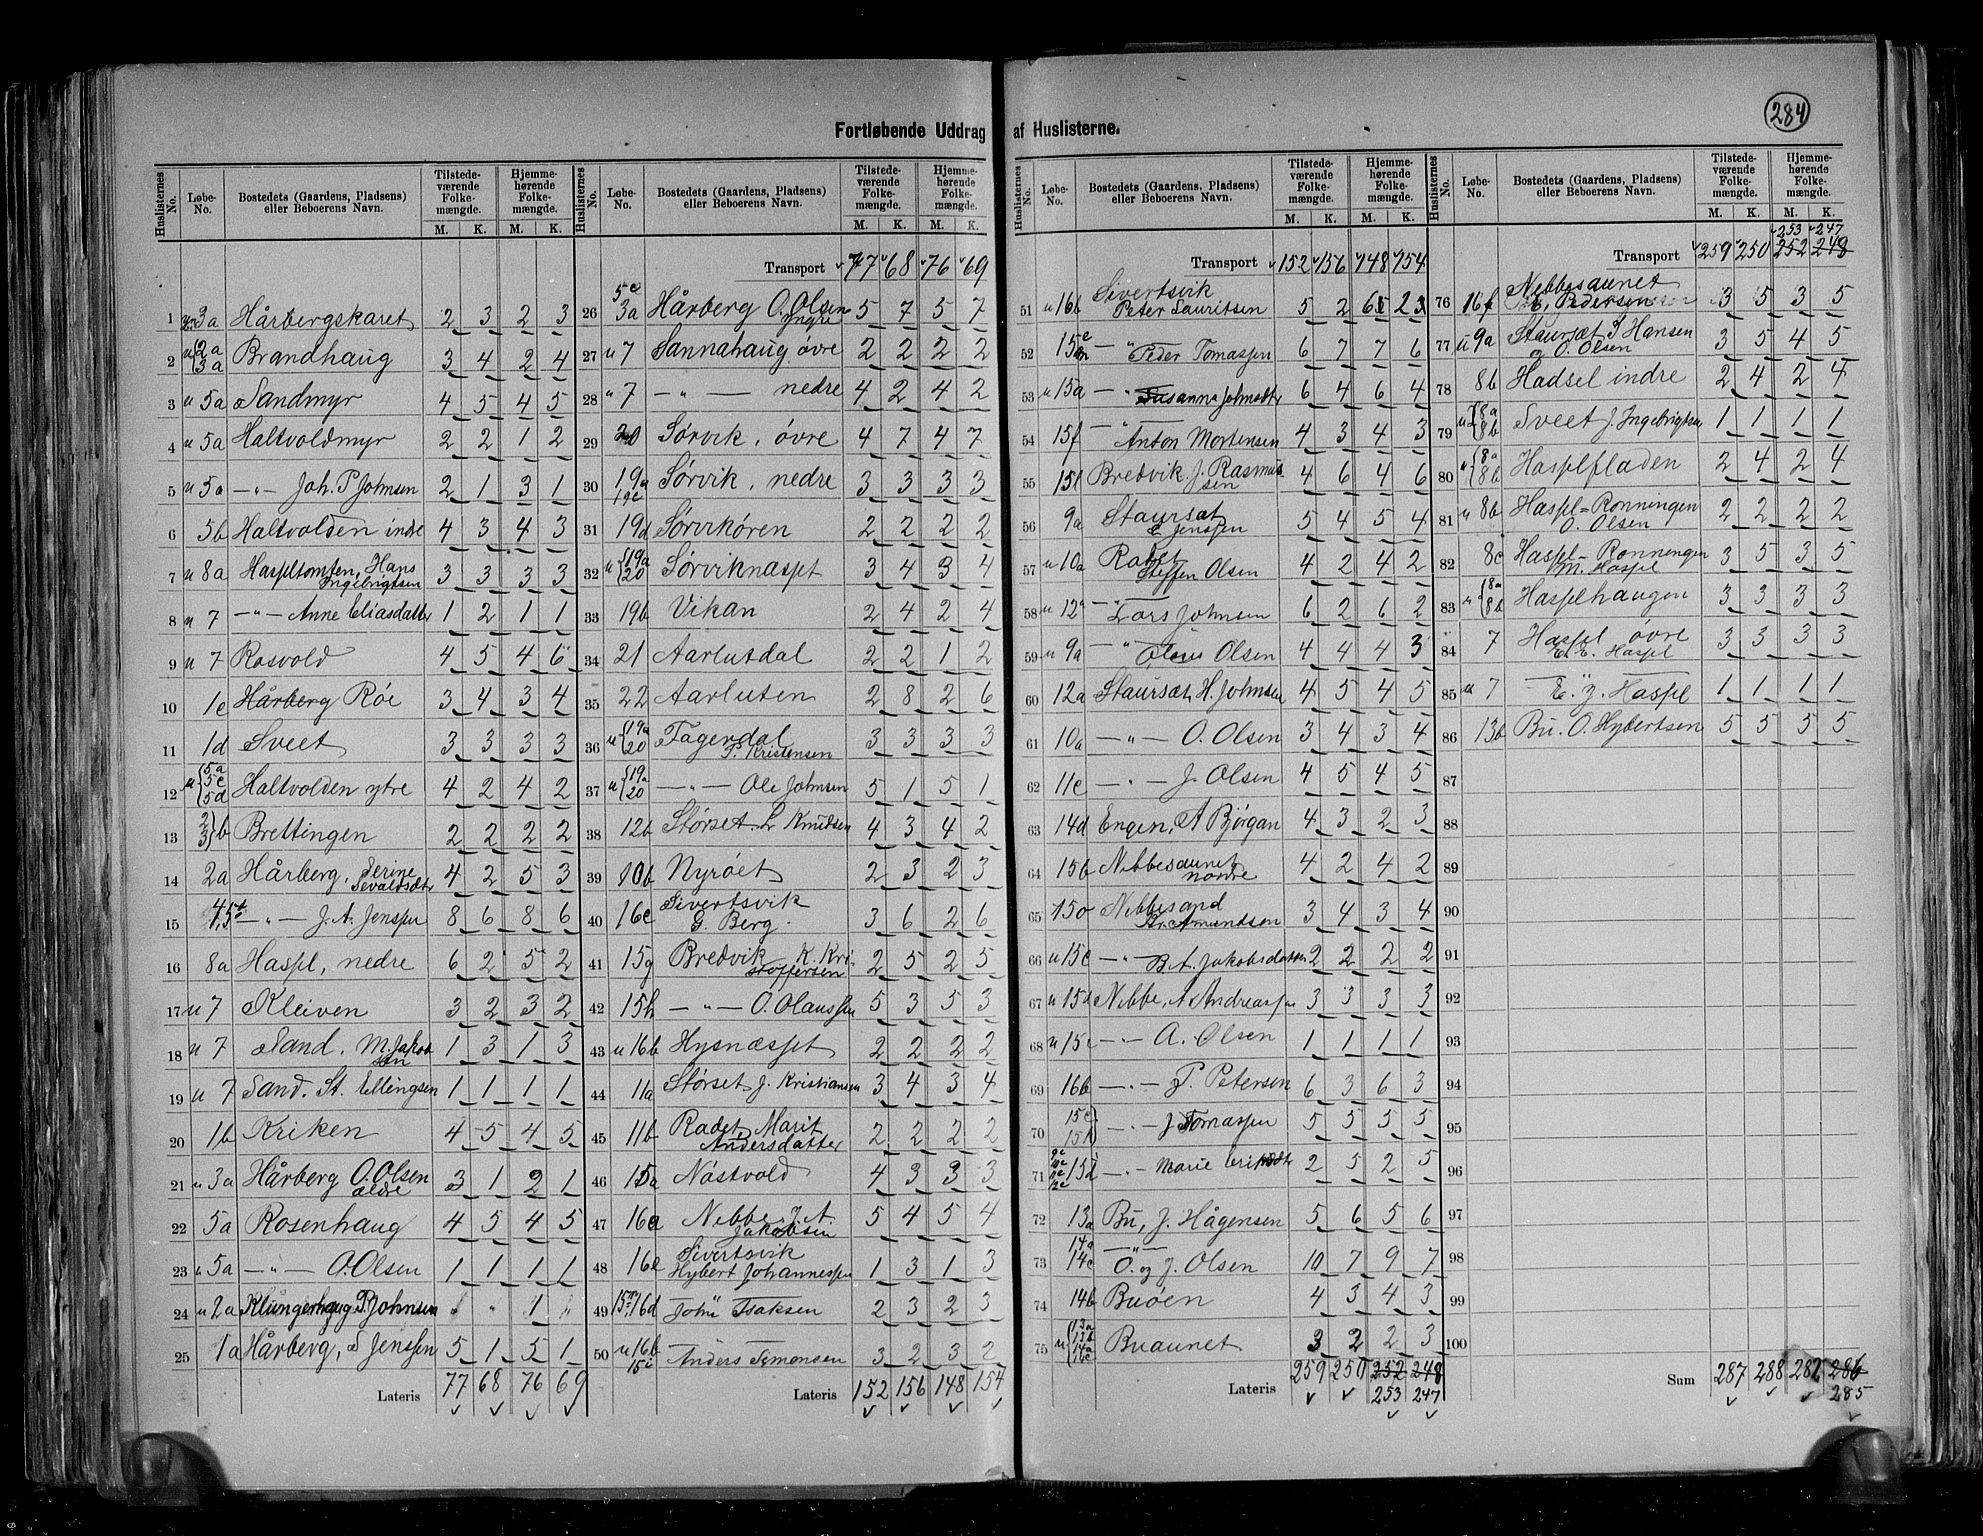 284
Fortløbende Uddrag af Huslisterne.
Huslisternes No. Løbe-No. Bostedets (Gaardens, Pladsens) eller Beboerens Navn. Tilstede-værende Folke-mængde. Hjemme-hørende Folke-mængde.
M. K. M. K.
1 3a Hårbergskaret 2 3 2 3
2 u 2a 3a Brandhaug 3 4 2 4
3 u 5a Sandmyr 4 5 4 5
4 u 5a Haltvoldmyr 2 2 1 2
5 u 5a —"— Joh. P Johnsen 2 1 3 1
6 5b Haltvolden indre 4 3 4 3
7 u 8a Haspltomten, Hans
Ingebrigtsen 3 3 3 3
8 u 7 —"— Anne Eliasdatter 1 2 1 1
9 u 7 Rosvold 4 5 4 6
10 1c Hårberg Röe 3 4 3 4
11 1d Sveet 3 3 3 3
12 u 5a 5c 5d Haltvolden ytre 4 2 4 2
13 2 3 b Brettingen 2 2 2 2
14 2a Hårberg, Serine
Sevaldsdtr 4 2 5 3
15 —"— J. A. Jenssen 8 6 8 6
16 8a Haspl, nedre 6 2 5 2
17 u 7 Kleiven 3 2 3 2
18 u 7 Sand. M. Jakob
sen 1 3 1 3
19 u 7 Sand. St. Ellingsen 1 1 1 1
20 1b Kriken 4 5 4 5
21 u 3a Hårberg O. Olsen
ældre 3 1 2 1
22 5a Rosenhaug 4 5 4 5
23 u 5a —"— O. Olsen 1 1 1 1
24 u 2a Klungerhaug P. Johnsen " " 1 "
25 1a Hårberg, S Jenssen 5 1 5 1
Lateris 77 68 76 69
Huslisternes No. Løbe-No. Bostedets (Gaardens, Pladsens) eller Beboerens Navn. Tilstede-værende Folke-mængde. Hjemme-hørende Folke-mængde.
M. K. M. K.
Transport 77 68 76 69
26 5c 3a Hårberg O. Olsen
yngre 5 7 5 7
27 u 7 Sannahaug övre 2 2 2 2
28 u 7 —"— nedre 4 2 4 2
29 20 Sørvik, övre 4 7 4 7
30 19a 19c Sørvik, nedre 3 3 3 3
31 19d Sørvikören 2 2 2 2
32 u 19a 20 Sørviknæsset 3 4 3 4
33 19b Vikan 2 4 2 4
34 21 Aarlutdal 2 2 1 2
35 22 Aarluten 2 8 2 6
36 u 19a 20 Fagerdal
P. Kristensen 3 3 3 3
37 u 19a 20 —"— Ole Johnsen 5 1 5 1
38 12b Störset L Knudsen 4 3 4 2
39 10b Nyröet 2 3 2 3
40 16c Sivertsvik
G. Berg. 3 6 2 6
41 15g Bredvik K. Kri-
stoffersen 2 5 2 5
42 15h —"— O. Olaussen 5 3 5 3
43 u 16b Hysnæsset 2 2 2 2
44 11a Störset J. Kristiansen 3 4 3 4
45 11b Radet Marit
Andersdatter 2 2 2 2
46 15a Nöstvold 4 3 3 3
47 16a Nebbe, J. A.
Jakobsen 5 4 5 4
48 16e Sivertsvik
Hybert Johannessen 1 3 1 3
49 16d John Isaksen 2 3 2 3
50 u 16b 15i Anders Simonsen 3 2 3 2
Lateris 152 156 148 154
Huslisternes No. Løbe-No. Bostedets (Gaardens, Pladsens) eller Beboerens Navn. Tilstede-værende Folke-mængde. Hjemme-hørende Folke-mængde.
M. K. M. K.
Transport 152 156 148 154
51 u 16b Sivertsvik
Peter Lauritsen 5 2
52 —"— Peder Tomassen 6 7 7 6
53 u 15a —"— Susanna Johnsdtr 6 4 6 4
54 15f —"— Anton Mortensen 4 3 4 3
55 15l Bredvik J. Rasmus
sen 4 6 4 6
56 9a Staursæt
E Jenssen 5 4 5 4
57 u 10a Radet
Steffen Olsen 4 2 4 2
58 u 12a —"— Lars Johnsen 6 2 6 2
59 u 9a —"— Olaus Olsen 4 4 4 3
60 12a Staursæt H. Johnsen 4 5 4 5
61 10a —"— O. Olsen 3 4 3 4
62 11c —"— J. Olsen 4 5 4 5
63 14d Engen, A Bjørgan 4 3 2 3
64 15b Nebbesaunet
nordre 4 2 4 2
65 15o Nebbesand
Kr. Amundsen 3 4 3 4
66 u 15c —"— B. A. Jakobsdatter 2 2 2 2
67 u 15d Nebbe, A Andreassen 3 3 3 3
68 u 15c —"— A. Olsen 1 1 1 1
69 16b —"— P. Petersen 6 3 6 3
70 15c —"— J. Tomassen 5 5 5 5
71 —"— Marie Eriksdtr 2 5 2 5
72 13a Bu, J. Hågensen 5 6 5 6
73 14a 14c —"—
O. og J. Olsen 10 7 9 7
74 14b Buöen 4 3 4 3
75 u 13a 13b 14a 14c Buaunet 3 2 2 3
Lateris 259 250 252 248
253 247
Huslisternes No. Løbe-No. Bostedets (Gaardens, Pladsens) eller Beboerens Navn. Tilstede-værende Folke-mængde. Hjemme-hørende Folke-mængde.
M. K. M. K.
253 247
Transport 259 250 252 248
76 16f Nebbesaunet
Pedersen 3 5 3 5
77 u 9a Staursæt J Hansen
og O. Olsen 3 5 4 5
78 8b Hadsel indre 2 4 2 4
79 u 8a 8b Sveet J. Ingebrigtsen 1 1 1 1
80 u 8a 8b Hasplfladen 2 4 2 4
81 u 8b Haspl-Rønningen
O. Olsen 2 2 2 2
82 8c Haspl-Rønningen
M. Haspl 3 5 3 5
83 u 8a 8b Hasplhaugen 3 3 3 3
84 7 Haspl övre
E. E. Haspl 3 3 3 3
85 u 7 E. J. Haspl 1 1 1 1
86 13b Bu. O. Hybertsen 5 5 5 5
87
88
89
90
91
92
93
94
95
96
97
98
99
100
Sum 287 288 282 286
285